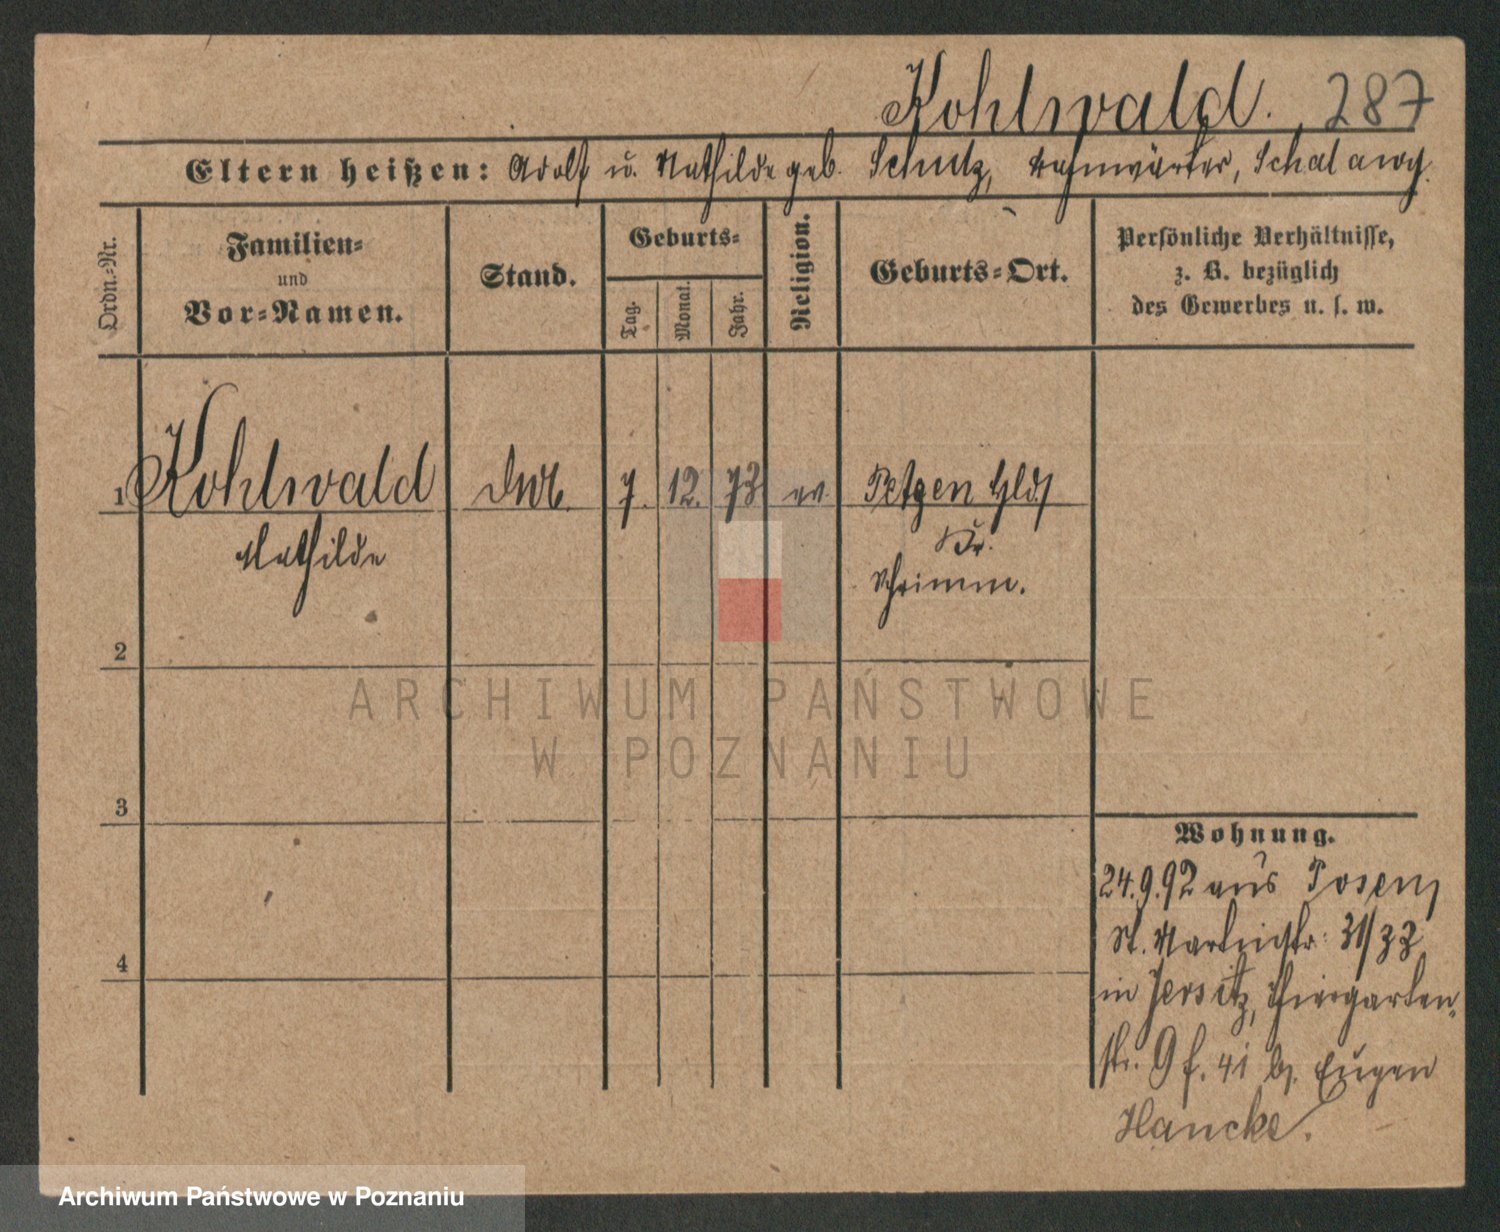 Kohlwald. 287
Eltern heißen: Adolf u. Mathilde geb. Schulz, Bahnwärter, Schalawy.
Ordn.-Nr.
Familien-
und
Vor-Namen.
Stand.
Geburts-
Tag.
Monat.
Jahr.
Religion.
Geburts-Ort.
Persönliche Verhältnisse,
z. B. bezüglich
des Gewerbes u. s. w.
1 Kohlwald 7. 12. 73 ev Petzen Hld
Mathilde Kr.
Schrimm.
2
3
4
Wohnung.
24.9.92 aus Posen,
St. Martinstr. 31/33
in Jersitz, Thiergarten-
str. 9 f. 41 b. Eugen
Hancke.
ARCHIWUM PAŃSTWOWE
W POZNANIU
Archiwum Państwowe w Poznaniu